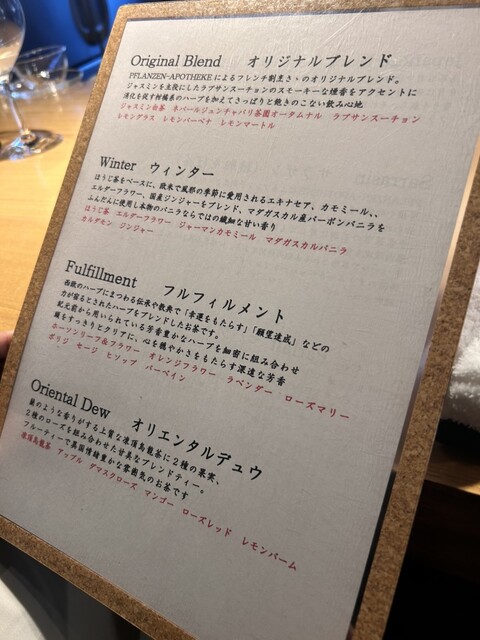 Original Blend オリジナルブレンド
PFLANZEN-APOTHEKE によるフレンチ割烹さゝのオリジナルブレンド。
ジャスミンを主役にしたラプサンスーチョンのスモーキーな燻香をアクセントに
消化を促す柑橘系のハーブを加えてさっぱりと飽きのこない飲み心地
ジャスミン白茶 ネパールジュンチャバリ茶園オータムナル ラプサンスーチョン
レモングラス レモンバーベナ レモンマートル
Winter ウィンター
ほうじ茶をベースに、欧米で風邪の季節に愛用されるエキナセア、カモミール、、
エルダーフラワー、国産ジンジャーをブレンド、マダガスカル産バーボンバニラを
ふんだんに使用し本物のバニラならではの繊細な甘い香り
ほうじ茶 エルダーフラワー ジャーマンカモミール マダガスカルバニラ
カルダモン ジンジャー
Fulfillment フルフィルメント
西欧のハーブにまつわる伝承や教典で「幸運をもたらす」「願望達成」などの
力が宿るとされたハーブをブレンドしたお茶です。
紀元前から用いられている芳香豊かなハーブを細密に組み合わせ
頭をすっきりとクリアに、心を穏やかさをもたらす深遠な芳香
ホーソンリーフ&フラワー オレンジフラワー ラベンダー ローズマリー
ボリジ セージ ヒソップ バーベイン
Oriental Dew オリエンタルデュウ
蘭のような香りがする上質な凍頂烏龍茶に2種の果実、
2種のローズを組み合わせた甘美なブレンドティー。
フルーティーで異国情緒豊かな雰囲気のお茶です
凍頂烏龍茶 アップル ダマスクローズ マンゴー ローズレッド レモンバーム